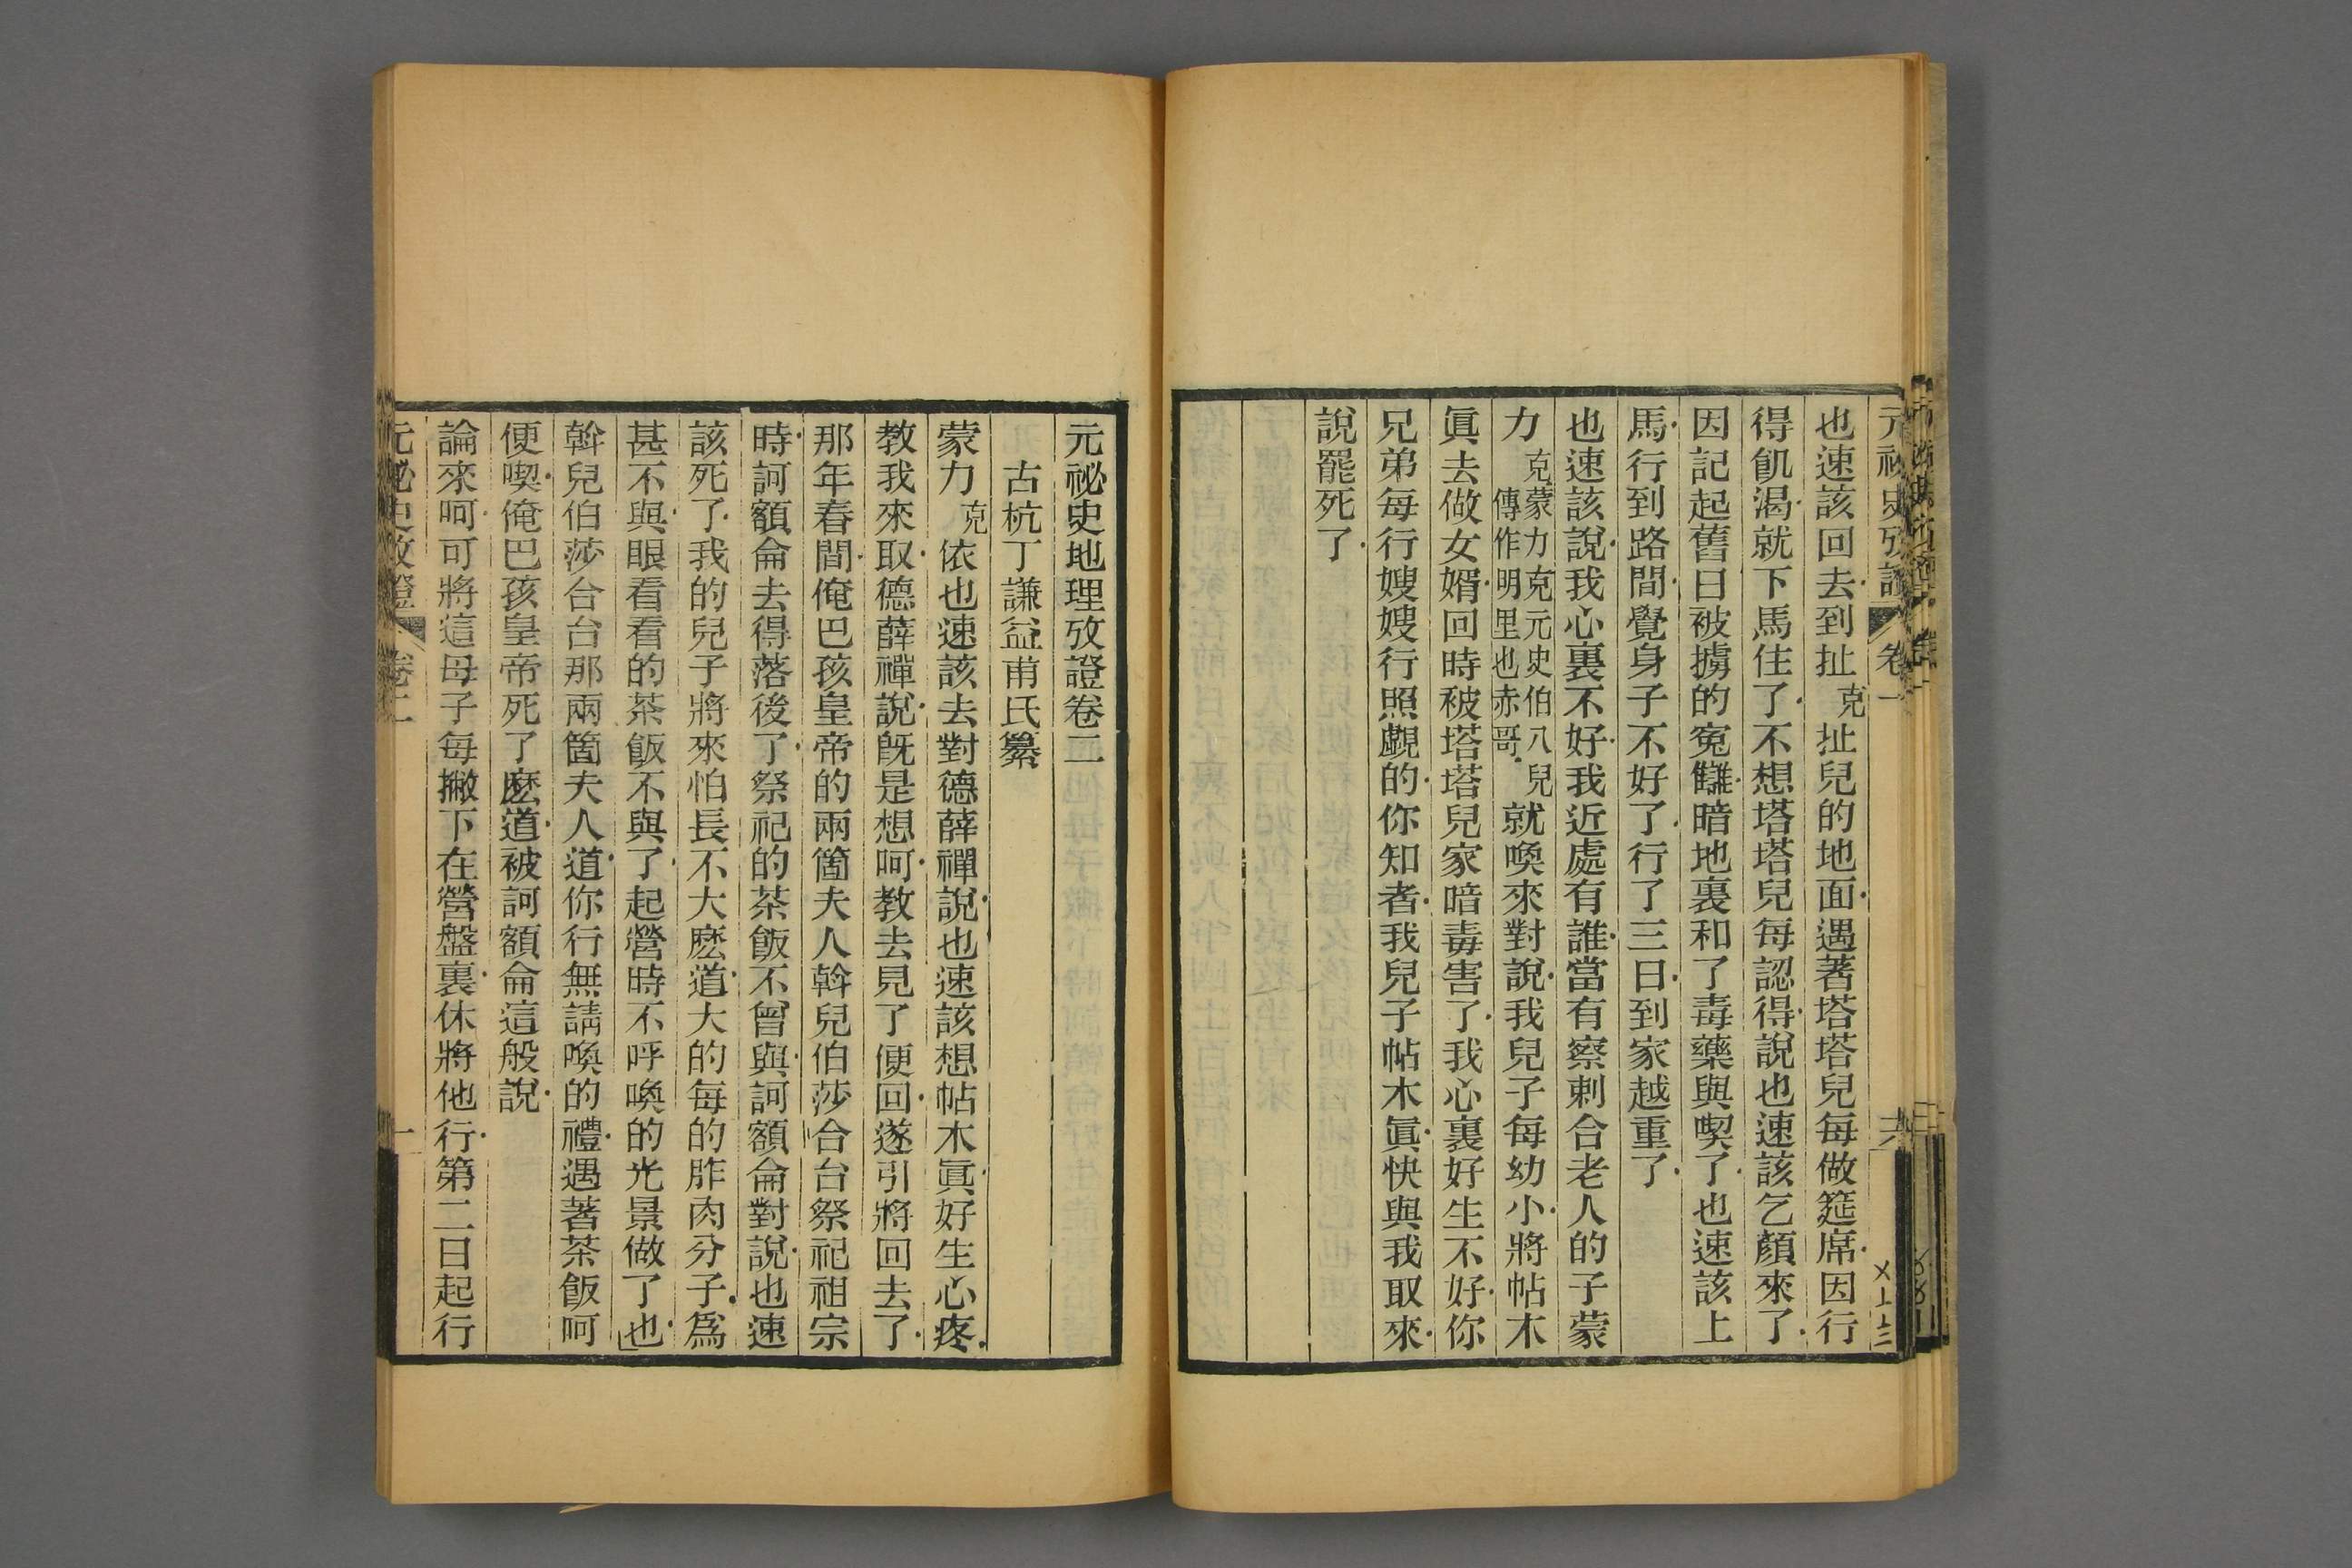 元秘史攷證 卷一 十六
也速該回去到扯克扯兒的地面遇著塔塔兒每做筵席因行
得飢渴就下馬住了不想塔塔兒每認得說也速該乞顏來了
因記起舊日被擄的冤讎暗地裏和了毒藥與喫了也速該上
馬行到路間覺身子不好了行了三日到家越重了
也速該說我心裏不好我近處有誰當有察剌合老人的子蒙
力克蒙力克元史伯八兒傳作明里也赤哥就喚來對說我兒子每幼小將帖木
眞去做女婿回時被塔塔兒家暗毒害了我心裏好生不好你
兄弟每行嫂嫂行照覷的你知者我兒子帖木眞快與我取來
說罷死了
元祕史地理攷證卷二
古杭丁謙益甫氏纂
蒙力克依也速該去對德薛禪說也速該想帖木眞好生心疼
教我來取德薛禪說旣是想呵教去見了便回遂引將回去了
那年春間俺巴孩皇帝的兩箇夫人斡兒伯莎合台祭祀祖宗
時訶額侖去得落後了祭祀的茶飯不曾與訶額侖對說也速
該死了我的兒子將來怕長不大麽道大的每的胙肉分子爲
甚不與眼看看的茶飯不與了起營時不呼喚的光景做了也
斡兒伯莎合台那兩箇夫人道你行無請喚的禮遇著茶飯呵
便喫俺巴孩皇帝死了麽道被訶額侖這般說
論來呵可將這母子每撇下在營盤裏休將他行第二日起行
元祕史攷證 卷二 一